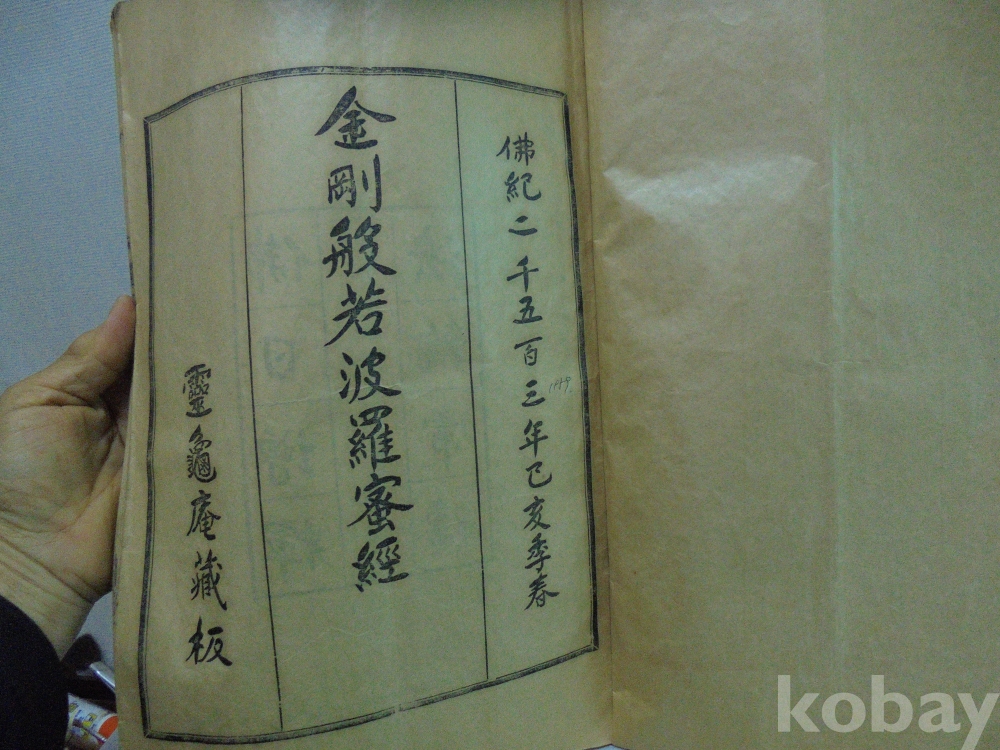 佛紀二千五百三年己亥季春
金剛般若波羅蜜經
靈龜庵藏板
kobay